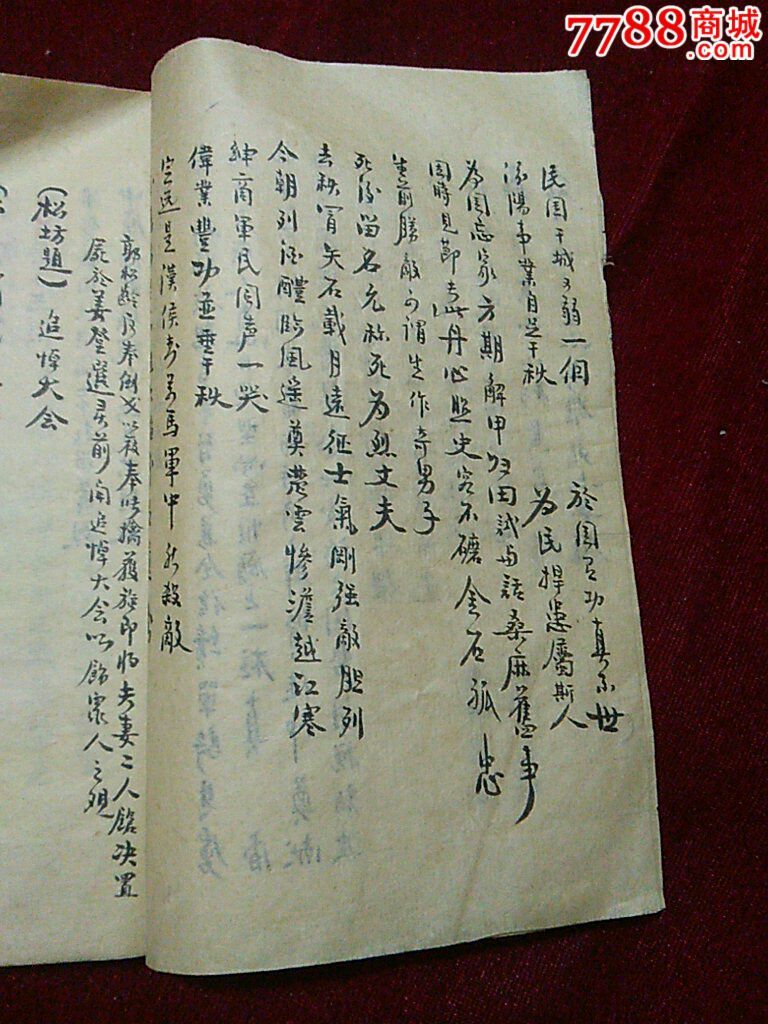 7788商城
民国干城又弱一個
於国有功真不世
汾陽事業自足千秋
為民捍患屬斯人
為国忘家方期解甲归田試与話桑麻舊事
固時見節去此丹心照史容不磷金石孤忠
生前勝敵可謂生作奇男子
死後留名允称死為烈丈夫
去秋冒矢石載月遠征士氣剛强敵胆列
今朝列酒醴臨風遥奠楚雲惨澹越江寒
紳商軍民同声一哭
偉業豐功並垂千秋
定远是漢侯於万馬軍中能殺敵
郭松齡反奉倒戈以後奉味擒獲旋即将夫妻二人鎗决置
屍於姜登選灵前開追悼大会以餙衆人之观
(松坊題)追悼大会